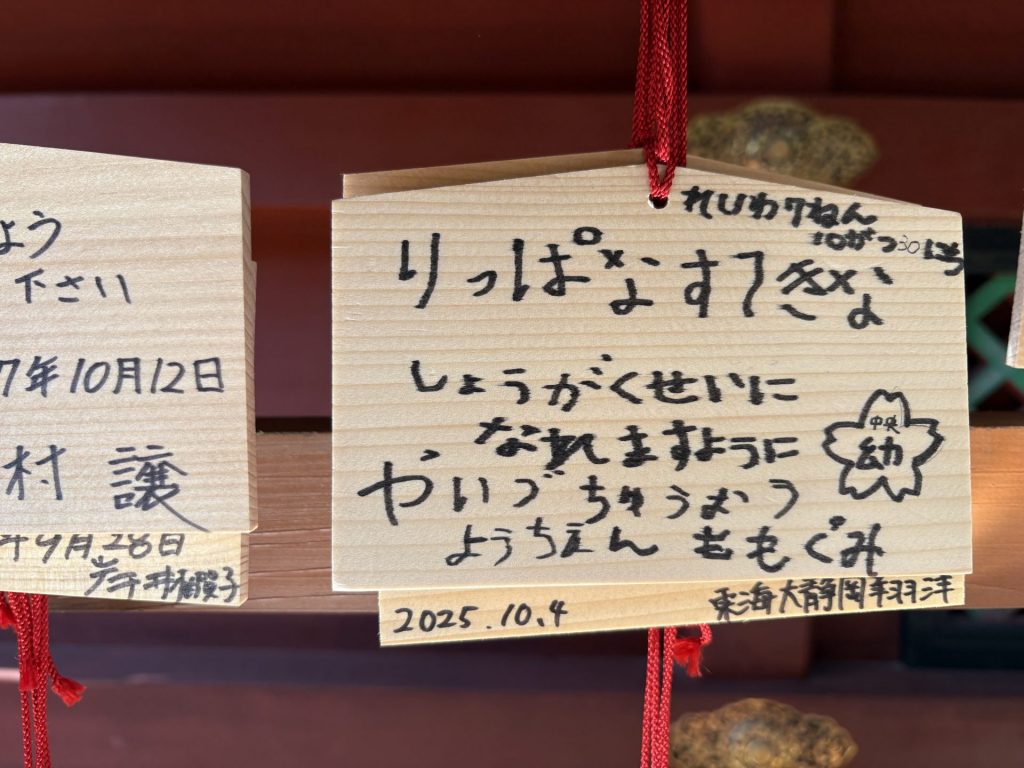 よう
下さい
7年10月12日
村 譲
年9月28日
れいわ7ねん
10がつ30にち
りっぱなすてきな
しょうがくせいに
なれますように
やいづちゅうおう
ようちえん ももぐみ
中央
幼
2025.10.4
東海大静岡翔洋